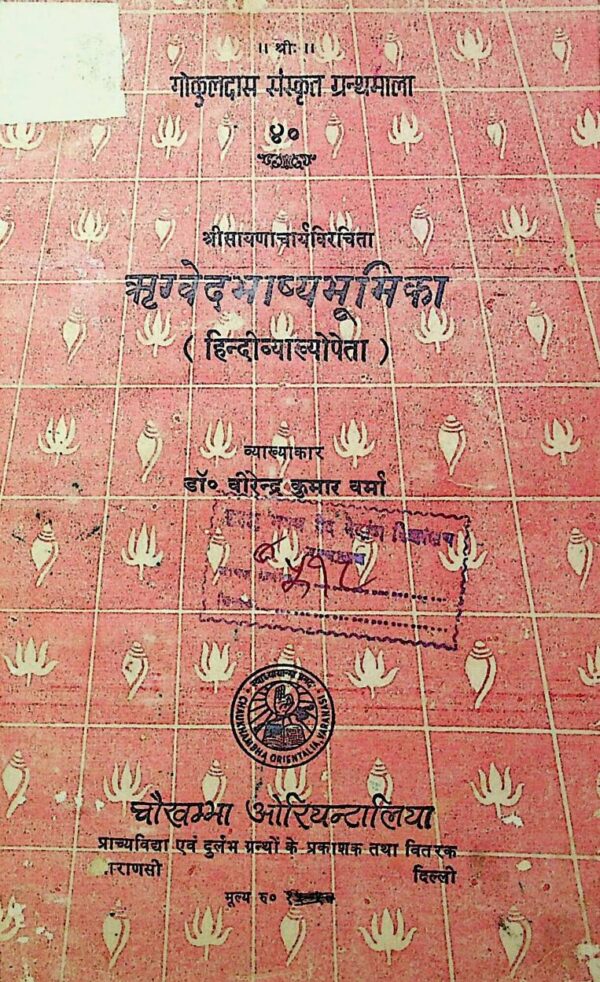 ॥ श्रीः ॥
गोकुलदास संस्कृत ग्रन्थमाला
४०
श्रीसायणाचार्यविरचिता
ऋग्वेदभाष्यभूमिका
( हिन्दीव्याख्योपेता )
व्याख्याकार
डॉ० वीरेन्द्र कुमार वर्मा
वेद विद्यालय
CHAUKHAMBHA ORIENTALIA, VARANASI
चौखम्भा ओरियन्टालिया
प्राच्यविद्या एवं दुर्लभ ग्रन्थों के प्रकाशक तथा वितरक
ाराणसी दिल्ली
मूल्य रु०